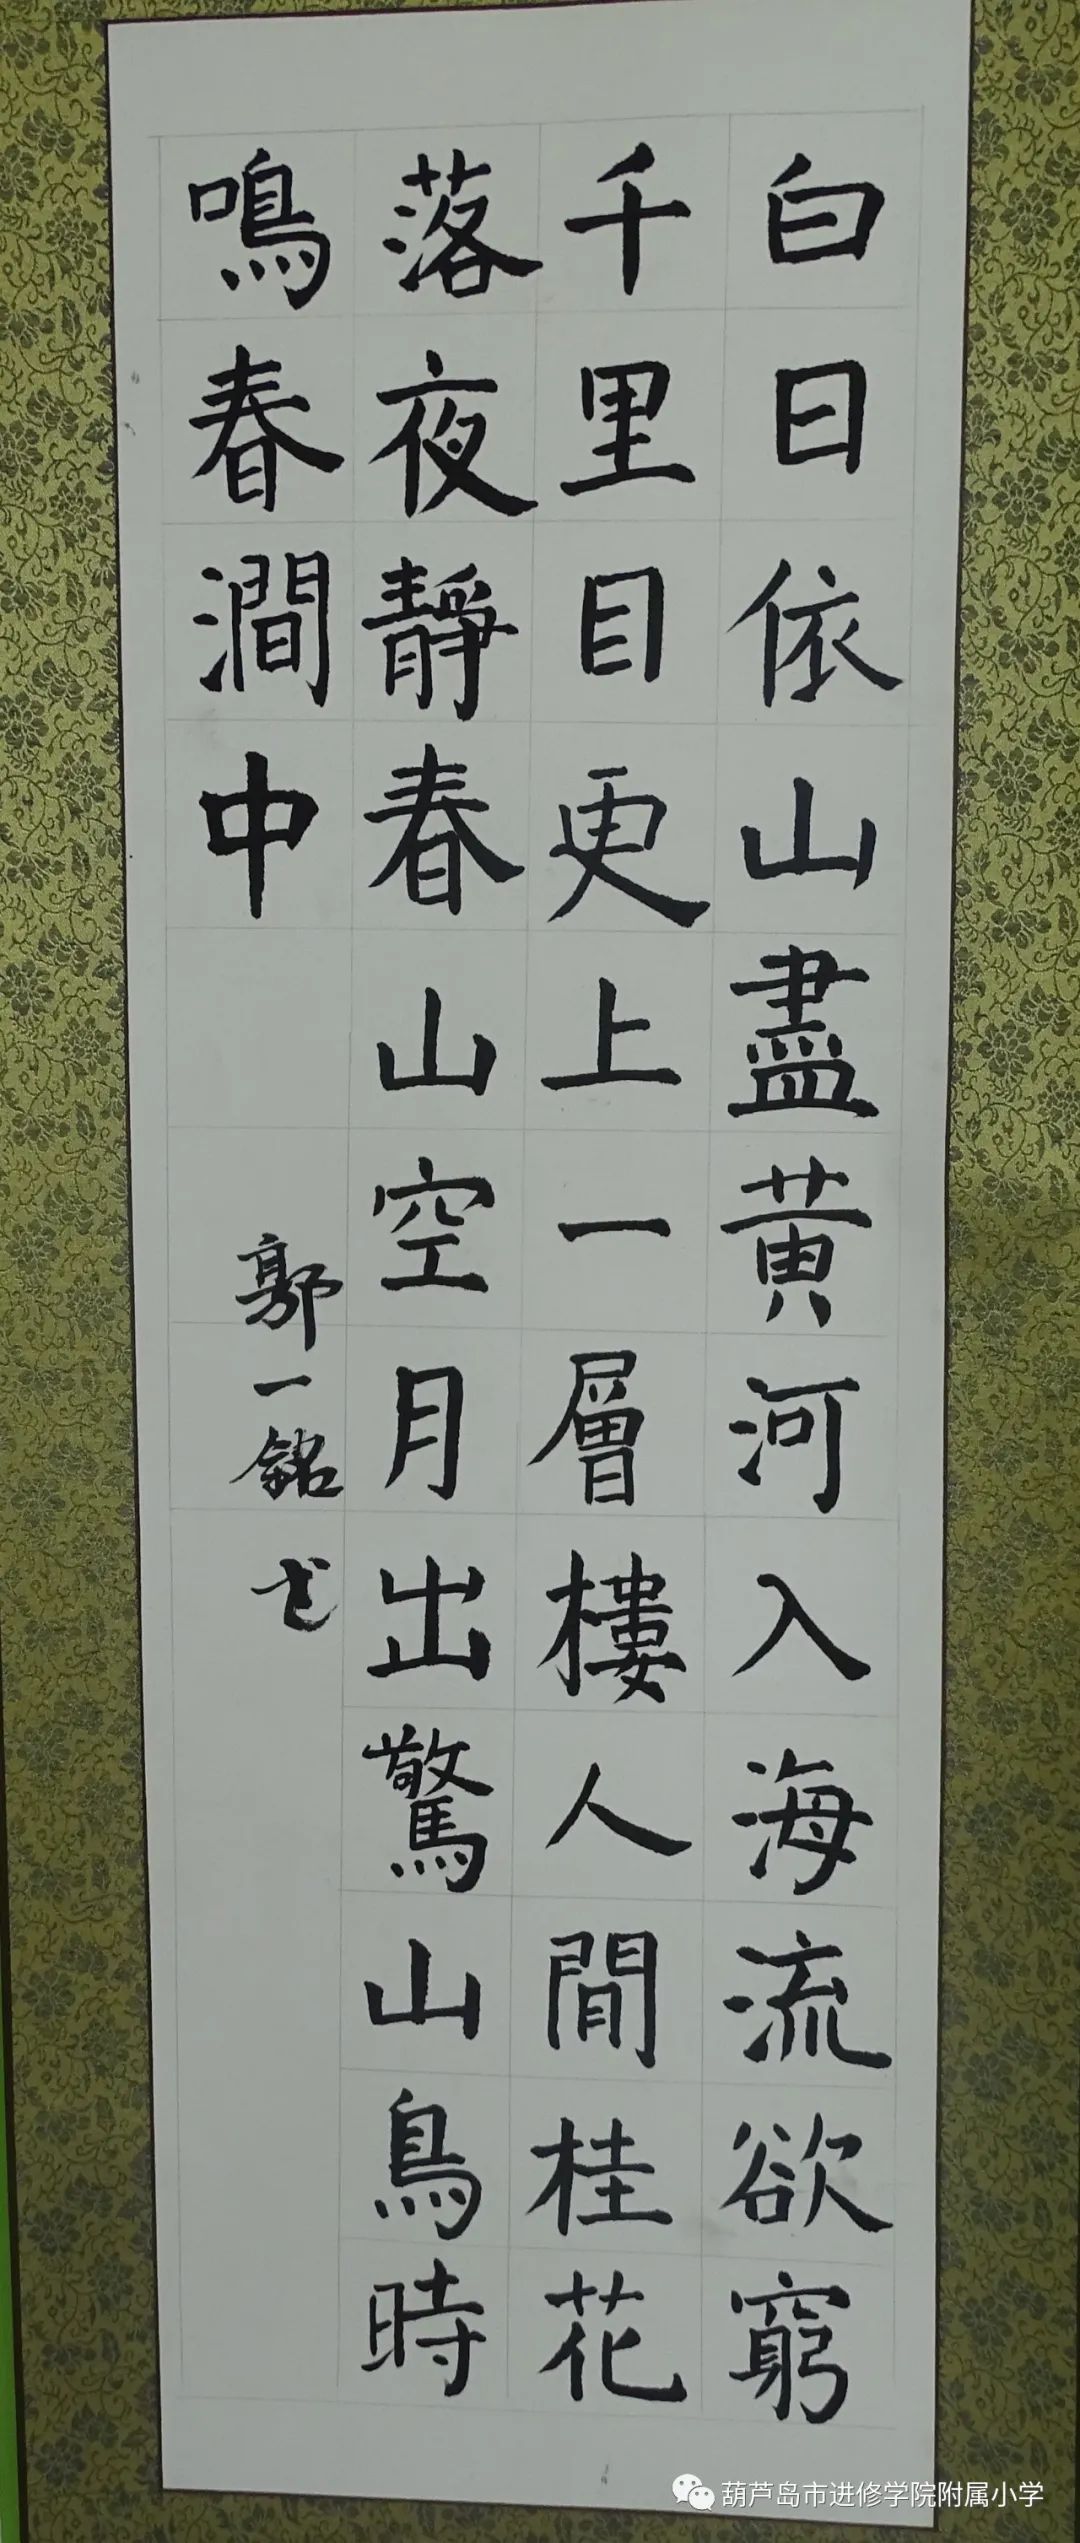 白日依山盡黃河入海流欲窮
千里目更上一層樓人間桂花
落夜靜春山空月出驚山鳥時
鳴春澗中
郭一銘書
葫芦岛市进修学院附属小学